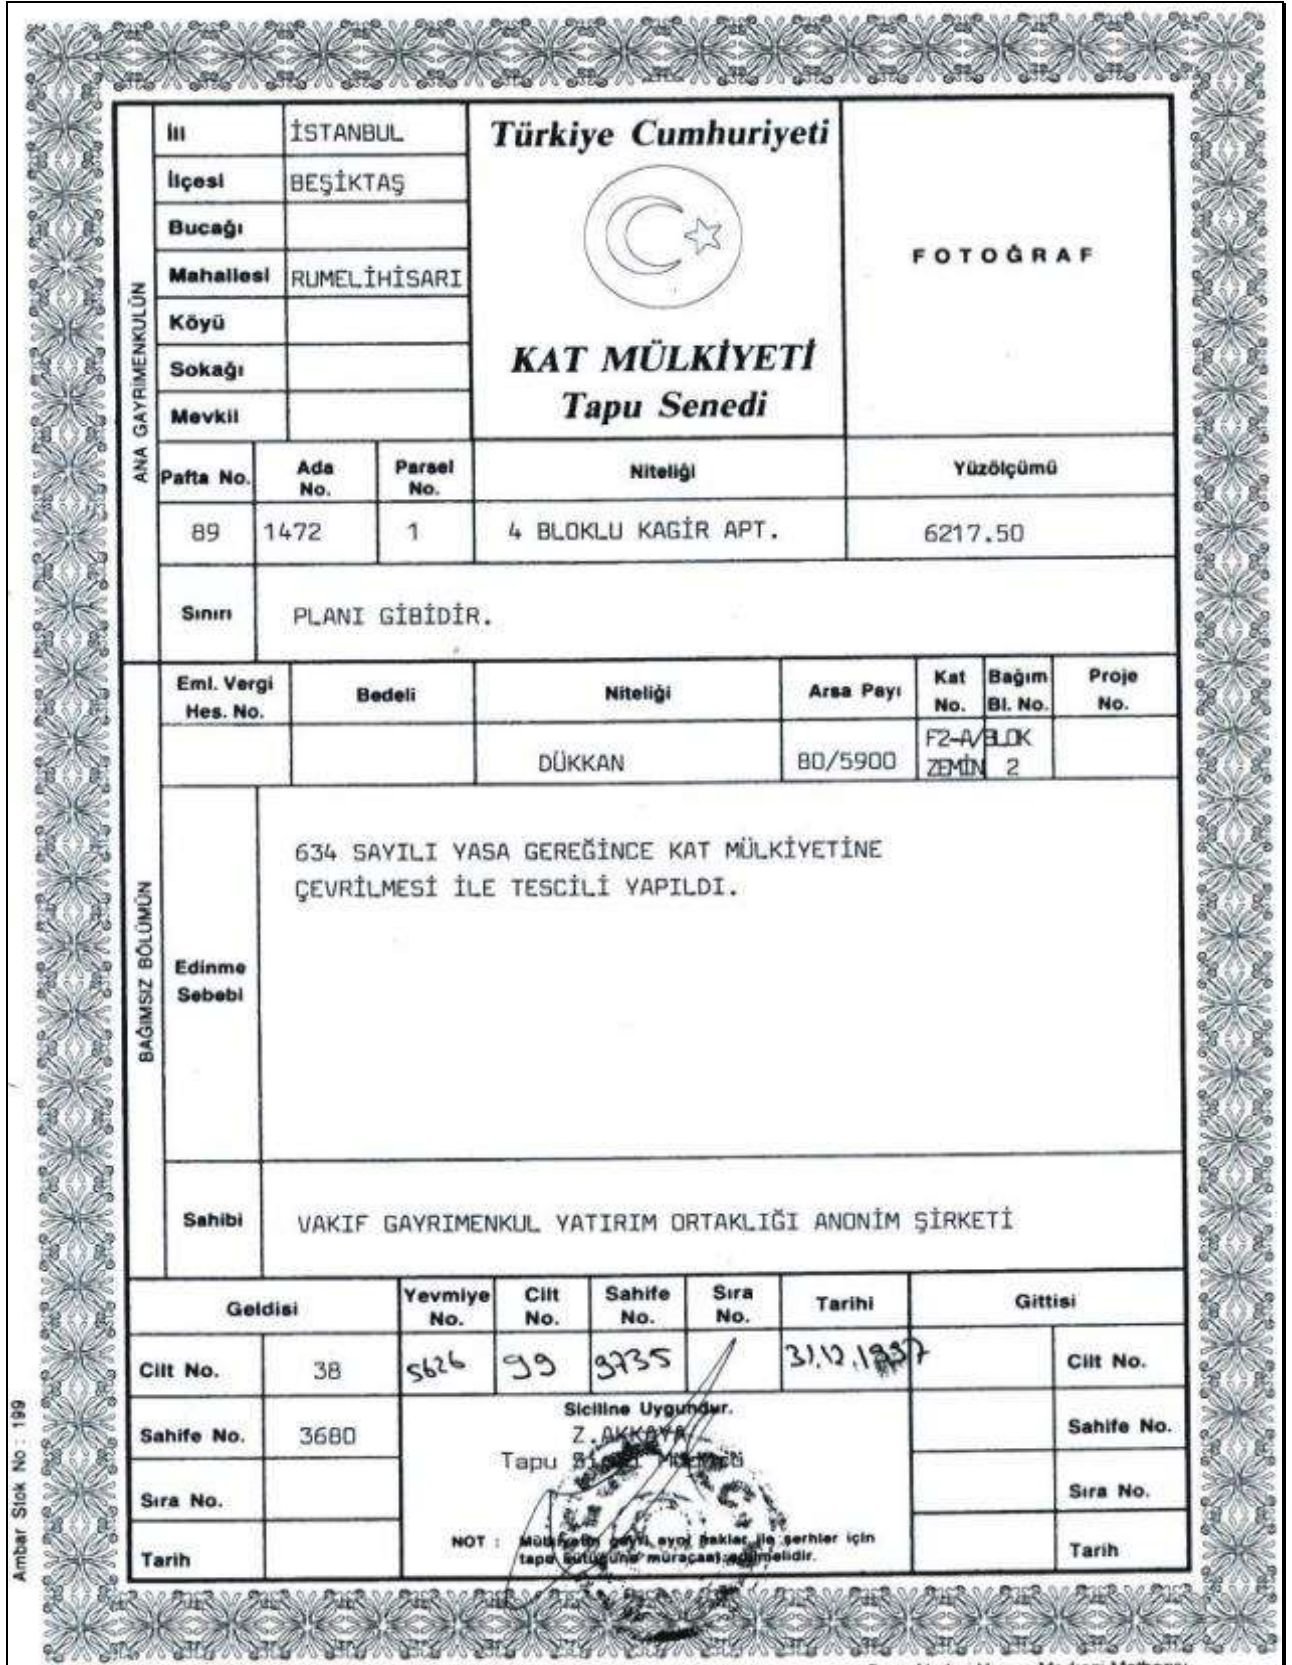 İli İSTANBUL
İlçesi BEŞİKTAŞ
Bucağı
Mahallesi RUMELİHİSARI
Köyü
Sokağı
Mevkii
Türkiye Cumhuriyeti
KAT MÜLKİYETİ
Tapu Senedi
FOTOĞRAF
ANA GAYRİMENKULÜN
Pafta No. Ada No. Parsel No. Niteliği Yüzölçümü
89 1472 1 4 BLOKLU KAGİR APT. 6217.50
Sınırı PLANI GİBİDİR.
BAĞIMSIZ BÖLÜMÜN
Eml. Vergi Hes. No. Bedeli Niteliği Arsa Payı Kat No. Bağım Bl. No. Proje No.
DÜKKAN 80/5900 F2-A/BLOK ZEMİN 2
Edinme Sebebi
634 SAYILI YASA GEREĞİNCE KAT MÜLKİYETİNE
ÇEVRİLMESİ İLE TESCİLİ YAPILDI.
Sahibi VAKIF GAYRIMENKUL YATIRIM ORTAKLIĞI ANONİM ŞİRKETİ
Geldisi Yevmiye No. Cilt No. Sahife No. Sıra No. Tarihi Gittisi
Cilt No. 38 5626 99 9735 31.12.1997 Cilt No.
Sahife No. 3680 Sahife No.
Sıra No. Sıra No.
Tarih Tarih
Siciline Uygundur.
Z.AKKAYA
Tapu
NOT : Mülkiyetin gayri ayni haklar ile şerhler için
tapu kütüğüne müracaat edilmelidir.
Ambar Stok No : 199